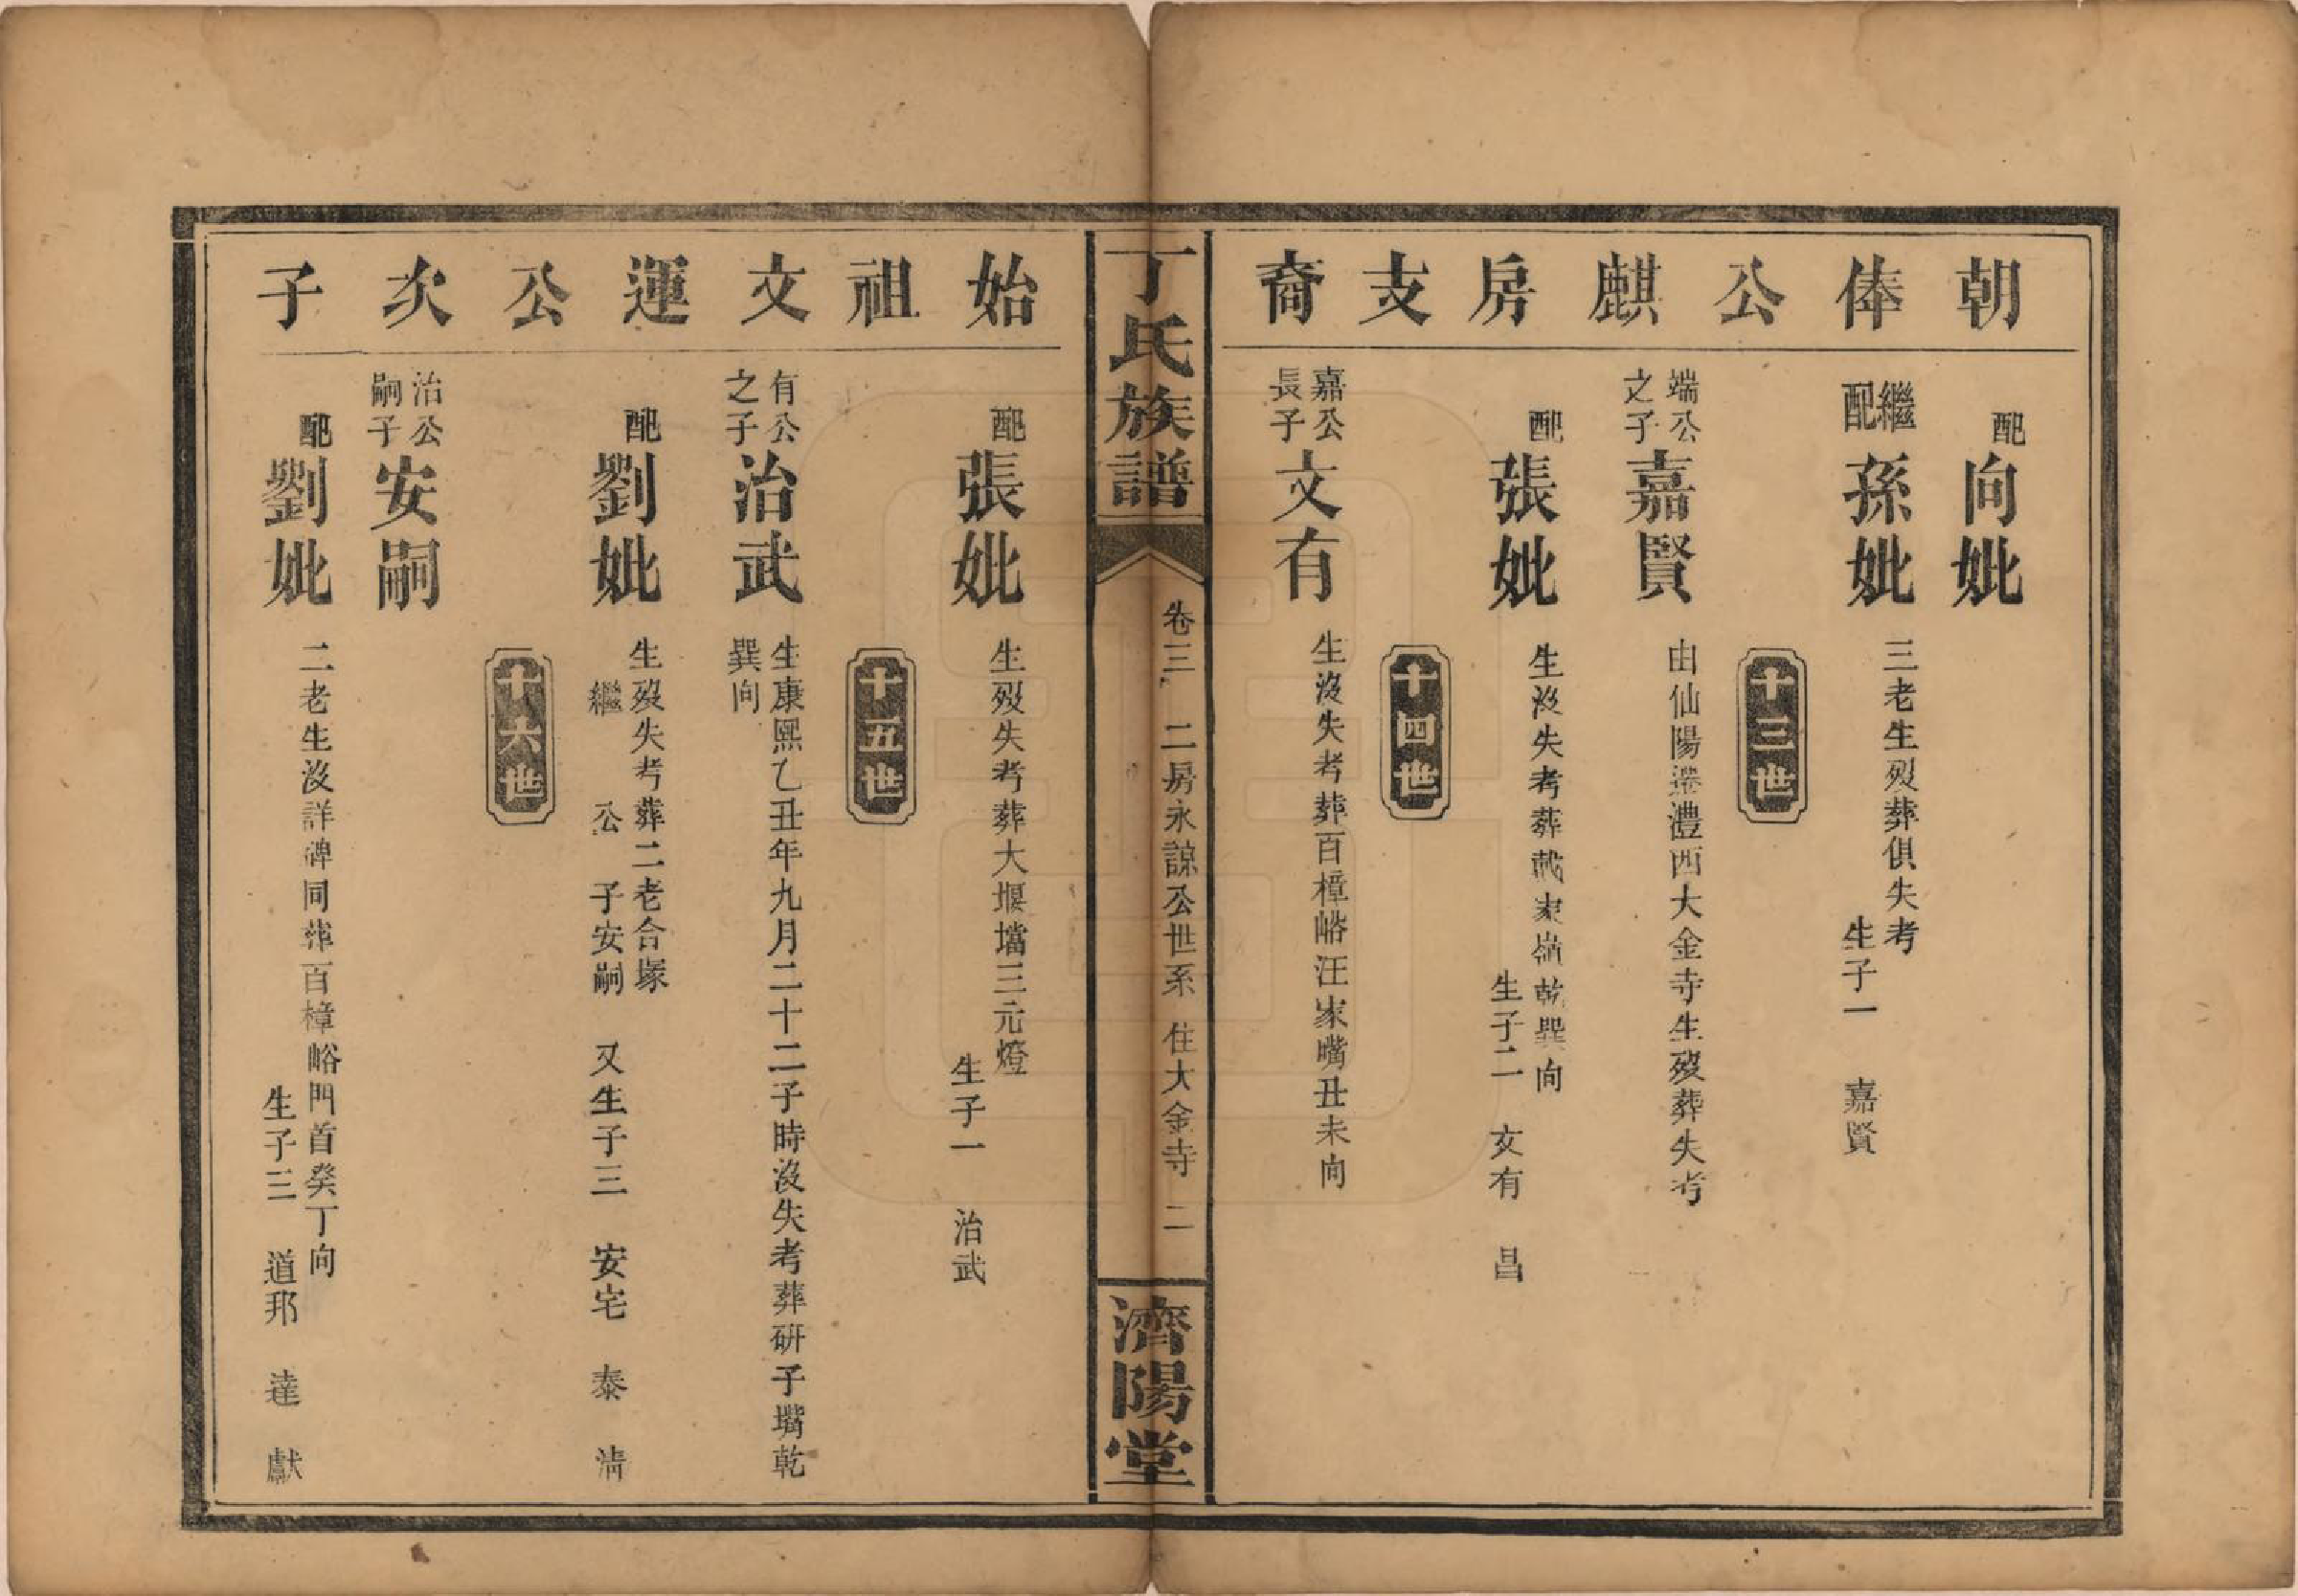 朝俸公麒房支裔
配向妣
繼配孫妣
三老生歿葬俱失考
生子一 嘉賢
十三世
端公之子嘉賢
由仙陽遷澧西大金寺生歿葬失考
配張妣
生没失考葬戴家嶺乾巽向
生子二 文有 昌
十四世
嘉公長子文有
生没失考葬百樟峪汪家嘴丑未向
丁氏族譜
卷三 二房永諒公世系 住大金寺 二
濟陽堂
始祖文運公次子
配張妣
生歿失考葬大堰壋三元燈
生子一 治武
十五世
有公之子治武
生康熙乙丑年九月二十二子時没失考葬研子嘴乾
巽向
配劉妣
生歿失考葬二老合塚
繼 公 子安嗣 又生子三 安宅 泰 清
十六世
治公嗣子安嗣
配劉妣
二老生没詳碑同葬百樟峪門首癸丁向
生子三 道邦 達 獻